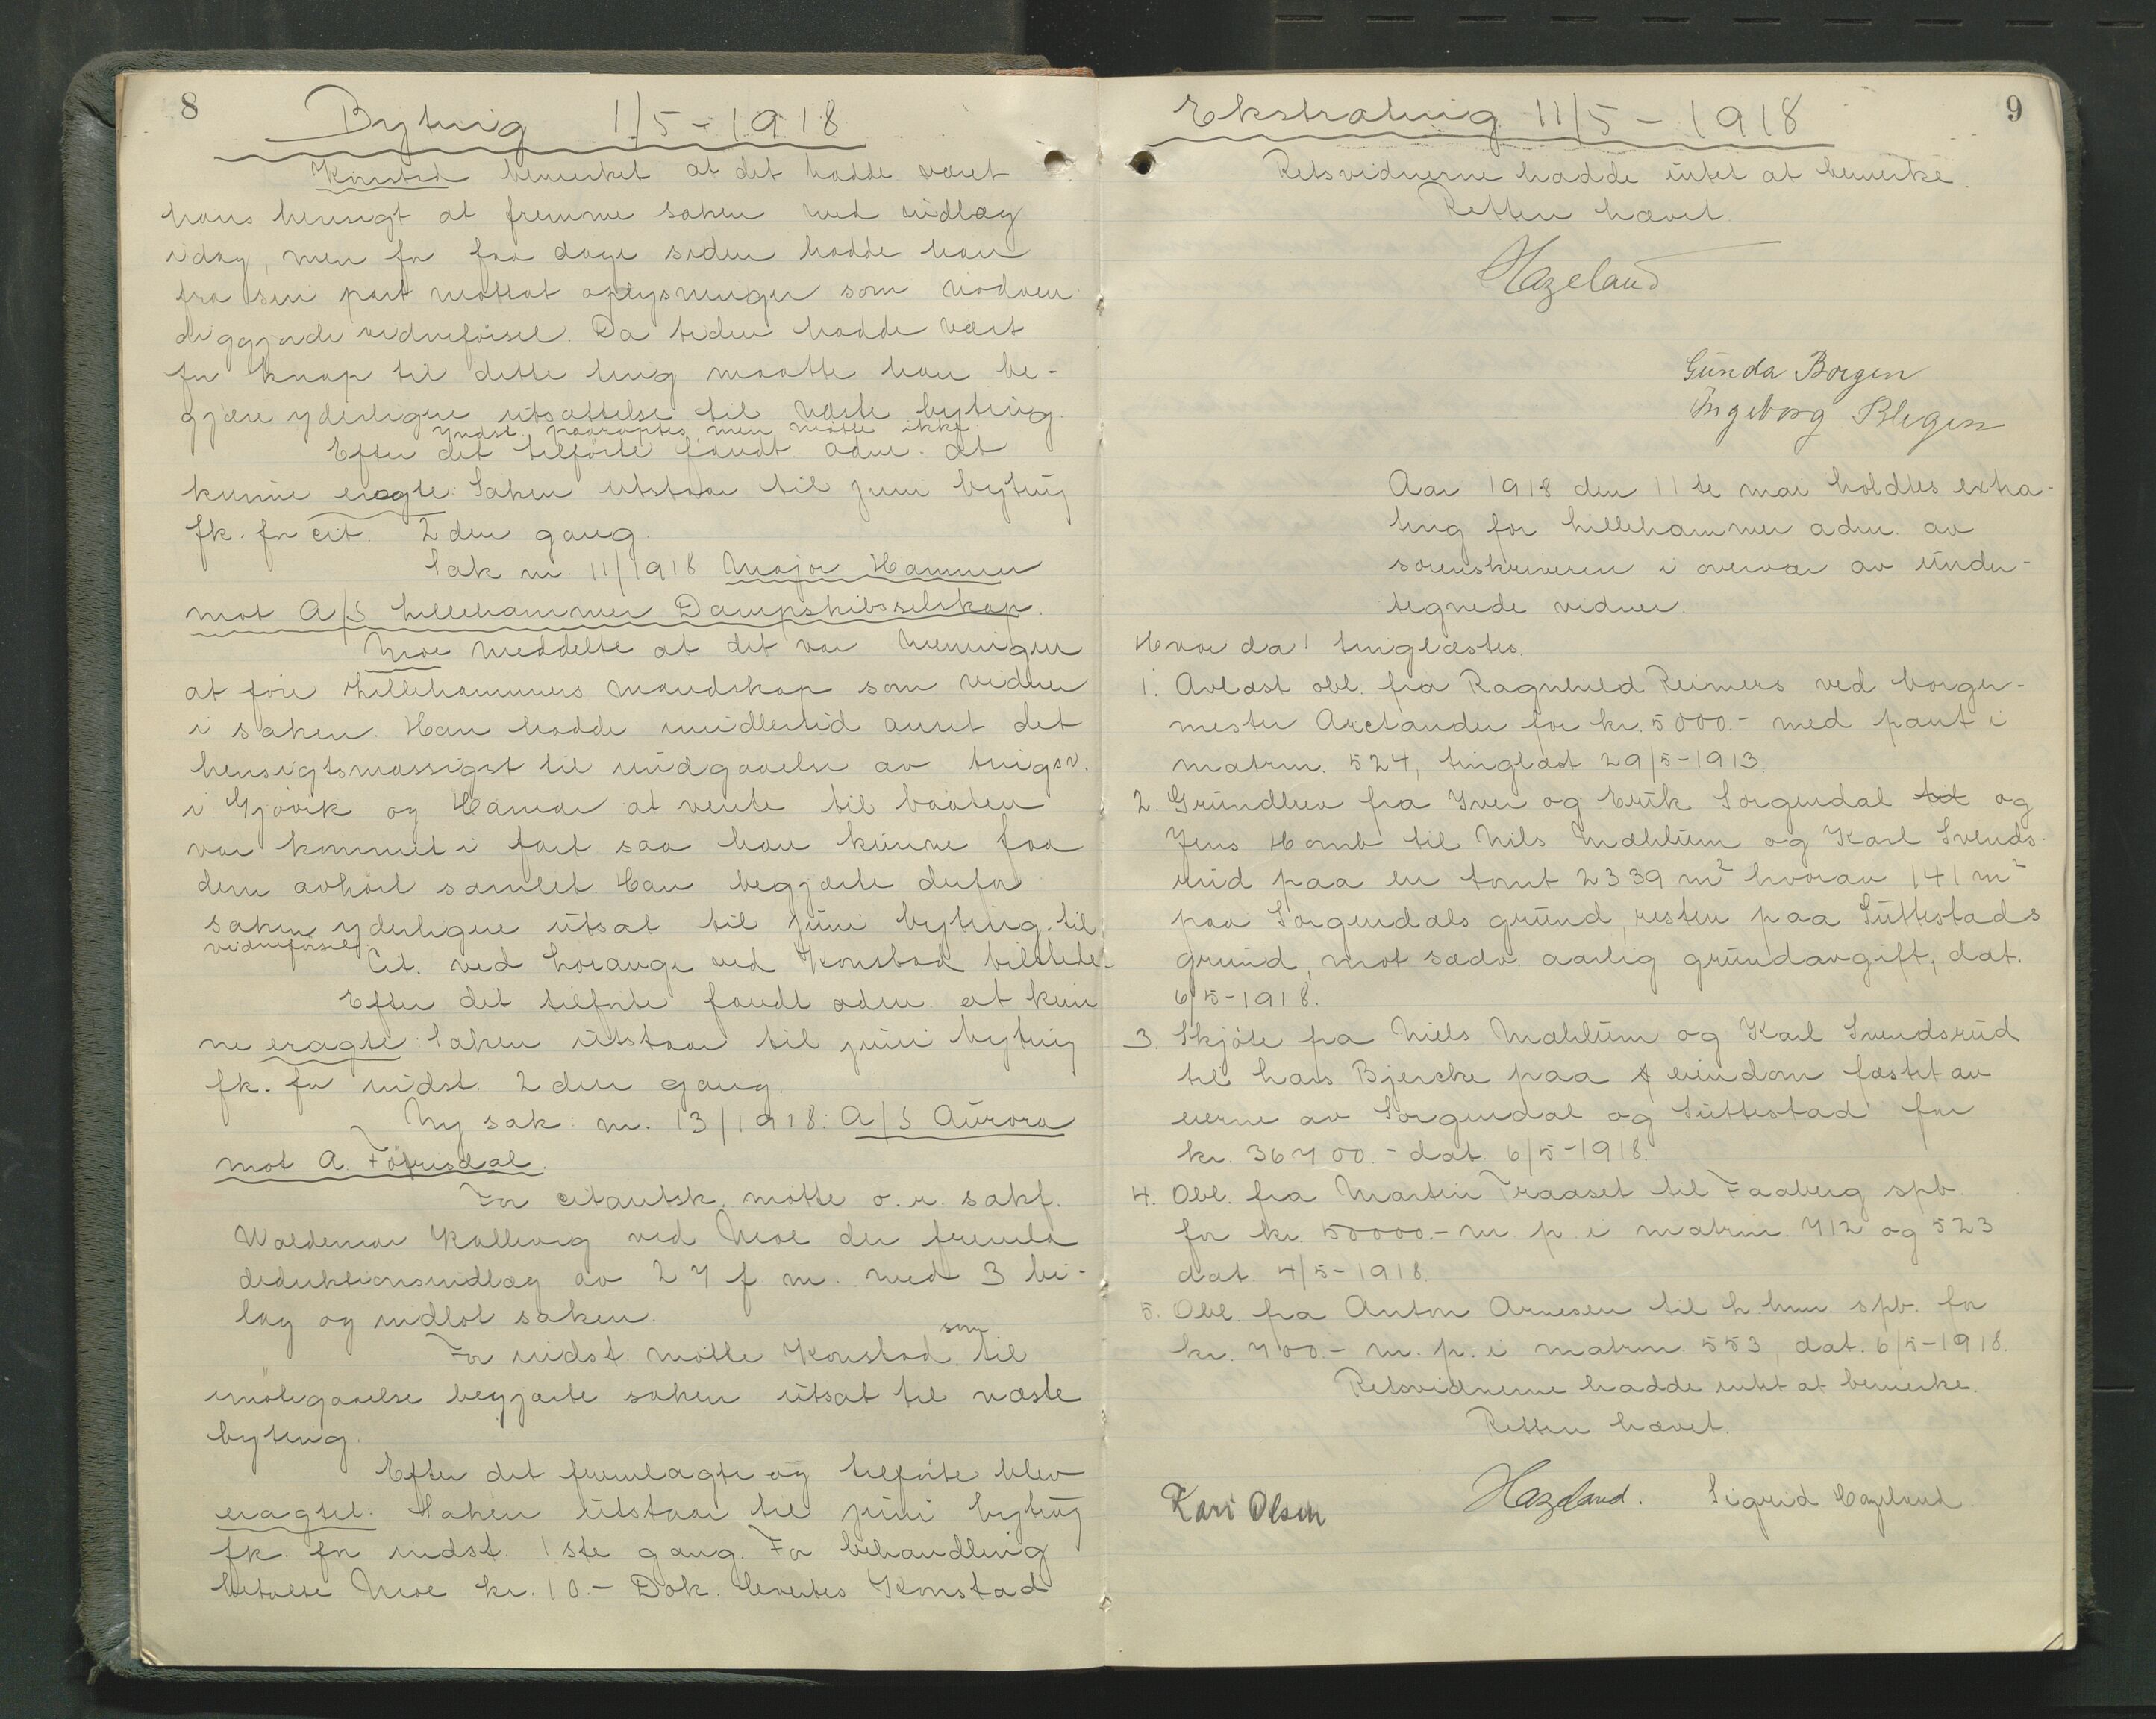 8
Byting 1/5-1918
Konstad bemerket at det hadde været
hans hensigt at fremme saken ved indlæg
idag, men for faa dage siden hadde han
fra sin part mottat oplysninger som nødven
diggjorde vidneførsel. Da tiden hadde vært
for knap til dette ting maatte han be-
gjære yderligere utsættelse til næste byting.
Indst. paaroptes, men møtte ikke.
Efter det tilførte fandt adm. at
kunne eragte: Saken utstaar til juni byting
fk. for cit. 2den gang.
Sak nr. 11/1918 Major Hammer
mot A/S Lillehammer Dampskibsselskap.
Moe meddelte at det var meningen
at føre Lillehammers mandskap som vidner
i saken. Han hadde imidlertid anset det
hensigtsmæssigst til undgaaelse av tingsv.
i Gjøvik og Hamar at vente til baaten
var kommet i fart saa han kunne faa
dem avhørt samlet. Han begjærte derfor
saken yderligere utsat til juni byting til
vidneførsel.
Cit. ved Lorange ved Konstad tilstede-
Efter det tilførte fandt adm. at kun
ne eragte: Saken utstaar til juni byting
fk. for indst. 2den gang.
Ny sak: nr. 13/1918: A/S Aurora
mot A.
For citantsk. møtte o.r. sakf.
Waldemar ved Moe der fremla
deduktionsindlæg av 27 f m. med 3 bi-
lag og indlot saken.
For indst. møtte Konstad som til
imøtegaaelse begjærte saken utsat til næste
byting.
Efter det fremlagte og tilførte blev
eragtet: Saken utstaar til juni byting
fk. for indst. 1ste gang. For behandling
betalte Moe kr. 10.- Dok. levertes Konstad
9
Ekstrating 11/5-1918
Retsvidnerne hadde intet at bemerke.
Retten hævet.
Hazeland
Gunda Borgen
Ingeborg Blegen
Aar 1918 den 11te mai holdtes extra-
ting for Lillehammer adm. av
sorenskriveren i overvær av under-
tegnede vidner.
Hvor da! tinglæstes.
1. Avlæst obl. fra Ragnhild Reimers ved borger-
mester Arctander for kr. 5000.- med pant i
matrnr. 524, tinglæst 29/5-1913.
2. Grundbrev fra Iver og Erik Sorgendal tot og
Jens Homb til Nils Mæhlum og Karl Svends-
rud paa en tomt 2339 m² hvorav 141 m²
paa Sorgendals grund, resten paa Suttestads
grund, mot sædv. aarlig grundavgift, dat.
6/5-1918.
3. Skjøte fra Niels Mæhlum og Karl Svendsrud
til Hans Bjercke paa eiendom fæstet av
eierne av Sorgendal og Suttestad for
kr. 36700.- dat. 6/5-1918.
4. Obl. fra Martin Traaset til Faaberg spb.
for kr. 50000.- m. p. i matrnr. 712 og 523
dat. 4/5-1918.
5. Obl. fra Anton Arnesen til L.hmr. spb. for
kr. 700.- m. p. i matrnr. 553, dat. 6/5-1918.
Retsvidnerne hadde intet at bemerke.
Retten hævet.
Kari Olsen Hazeland. Sigrid Hazeland.